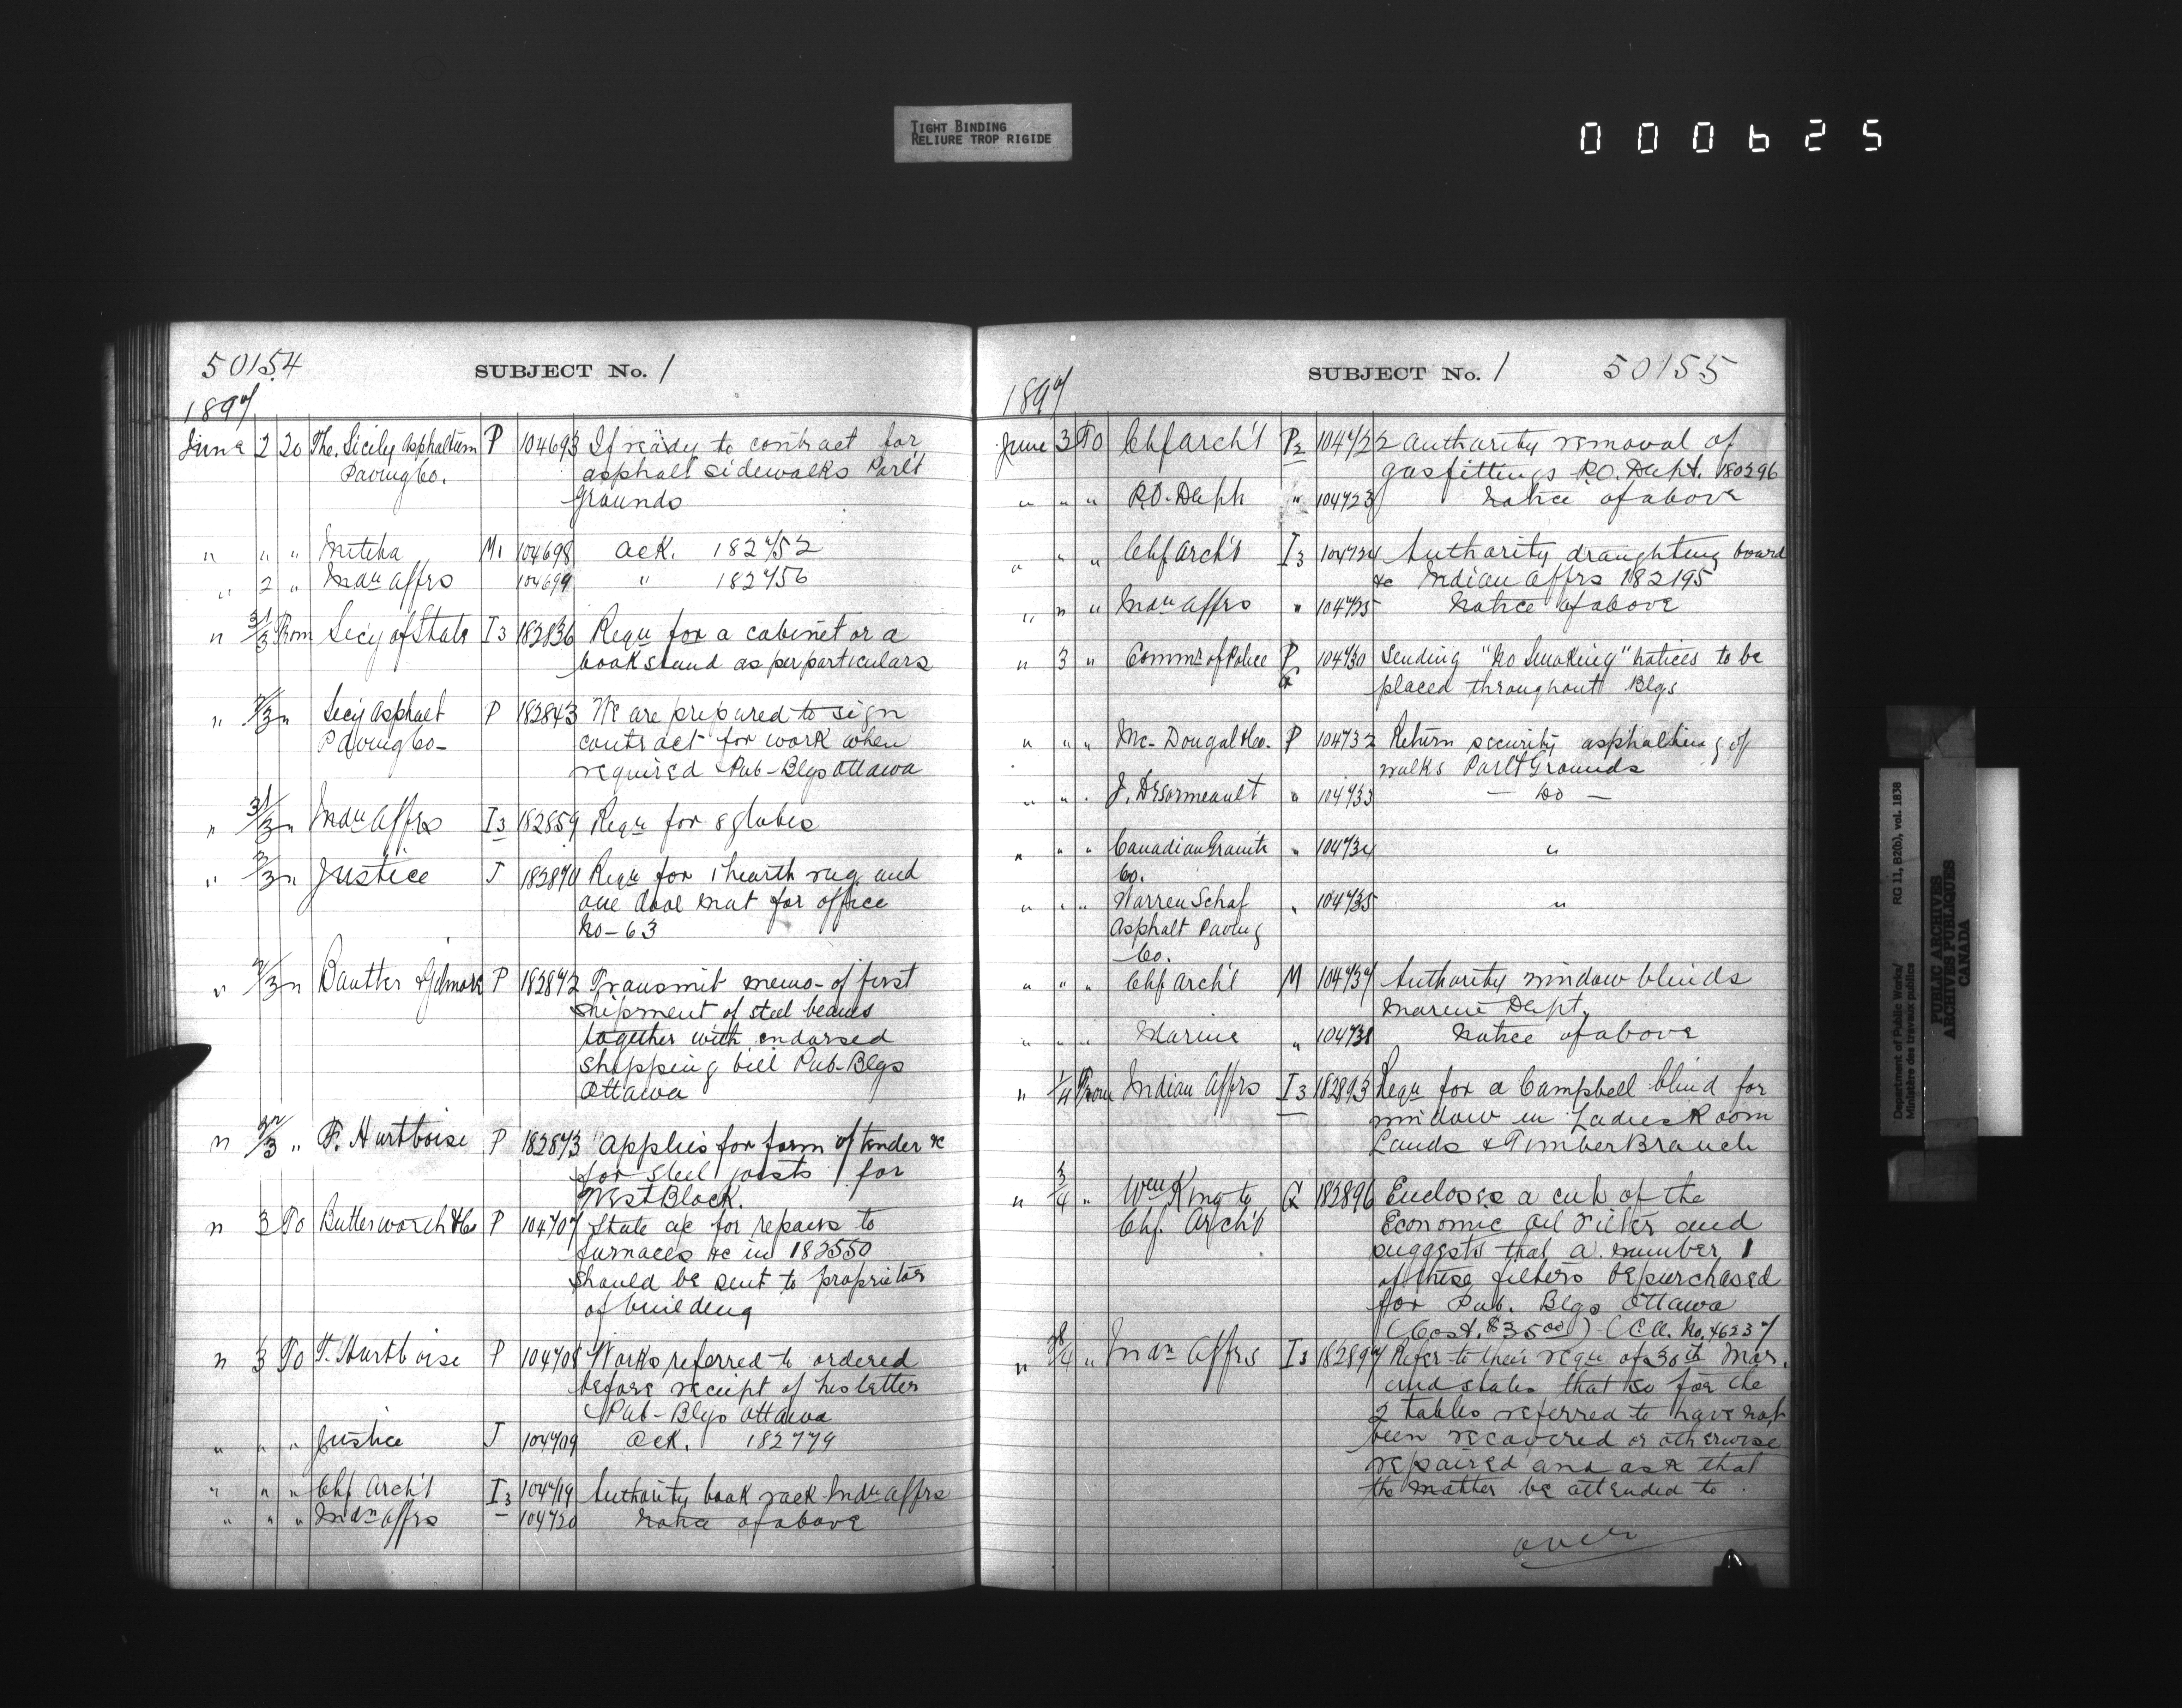 TIGHT BINDING
RELIURE TROP RIGIDE
000625
50154 SUBJECT No. 1
1897
June 2 To The Sicily Asphaltum P 104693 If ready to contract for
Paving Co. asphalt sidewalks Parlt
Grounds
" " " Militia M1 104698 ack. 182752
" 2 " Indn Affrs 104699 " 182756
" 31/3 From Secy of State I3 182836 Requ for a cabinet or a
book stand as per particulars
" 2/3 " Sicily Asphalt P 182843 We are prepared to sign
Paving Co- contract for work when
required Pub-Blgs Ottawa
" 31/3 " Indn Affrs I3 182859 Requ for 8 globes
" 2/3 " Justice J 182870 Requ for 1 hearth rug and
one door mat for office
No-63
" 2/3 " P 182872 Transmit memo- of first
shipment of steel beams
together with endorsed
shipping bill Pub-Blgs
Ottawa
" " F. Hurtboise P 182873 Applies for form of tender &c
for steel joists for
West Block.
" 3 To Butterworth & Co P 104707 State a/c for repairs to
furnaces &c in 182550
should be sent to proprietor
of building
" 3 To F. Hurtboise P 104708 Works referred to ordered
before receipt of his letter
Pub-Blgs Ottawa
" " " Justice J 104709 ack. 182779
" " " Chf Arch't I3 104719 Authority book rack Indn Affrs
" " " Indn Affrs 104720 Notice of above
SUBJECT No. 1 50155
1897
June 3 To Chf Arch't P2 104722 authority removal of
gasfittings P.O. Dept. 180296
" " " P.O. Dept " 104723 Notice of above
" " " Chf Arch't I3 104724 Authority draughting board
&c Indian Affrs 182195
" " " Indn Affrs " 104725 Notice of above
" 3 " Commr of Police P 104730 Sending "No Smoking" notices to be
placed throughout Blgs
" " " Mc-Dougal & Co. P 104732 Return security asphalting of
walks Parlt Grounds
" " " J. Desormeault " 104733 — Do —
" " " Canadian Granite " 104734 "
Co.
" " " Warren Schaf " 104735 "
Asphalt Paving
Co.
" " " Chf Arch't M 104737 Authority window blinds
Marine Dept.
" " " Marine " 104738 Notice of above
" 1/4 From Indian Affrs I3 182893 Requ for a Campbell blind for
window in Ladies Room
Lands & Timber Branch
" 3/4 " Wm King to G 182896 Encloses a cut of the
Chf. Arch't Economic Oil Filter and
suggests that a number 1
of these filters be purchased
for Pub. Blgs Ottawa
(Cost. $35.00) (C.A. No. 46237
" " Indn Affrs I3 182897 Refer to their requ of 30th Mar.
and states that so far the
2 tables referred to have not
been recovered or otherwise
repaired and ask that
the matter be attended to
over
Department of Public Works/
Ministère des travaux publics
RG 11, B2(b), vol. 1838
PUBLIC ARCHIVES
ARCHIVES PUBLIQUES
CANADA